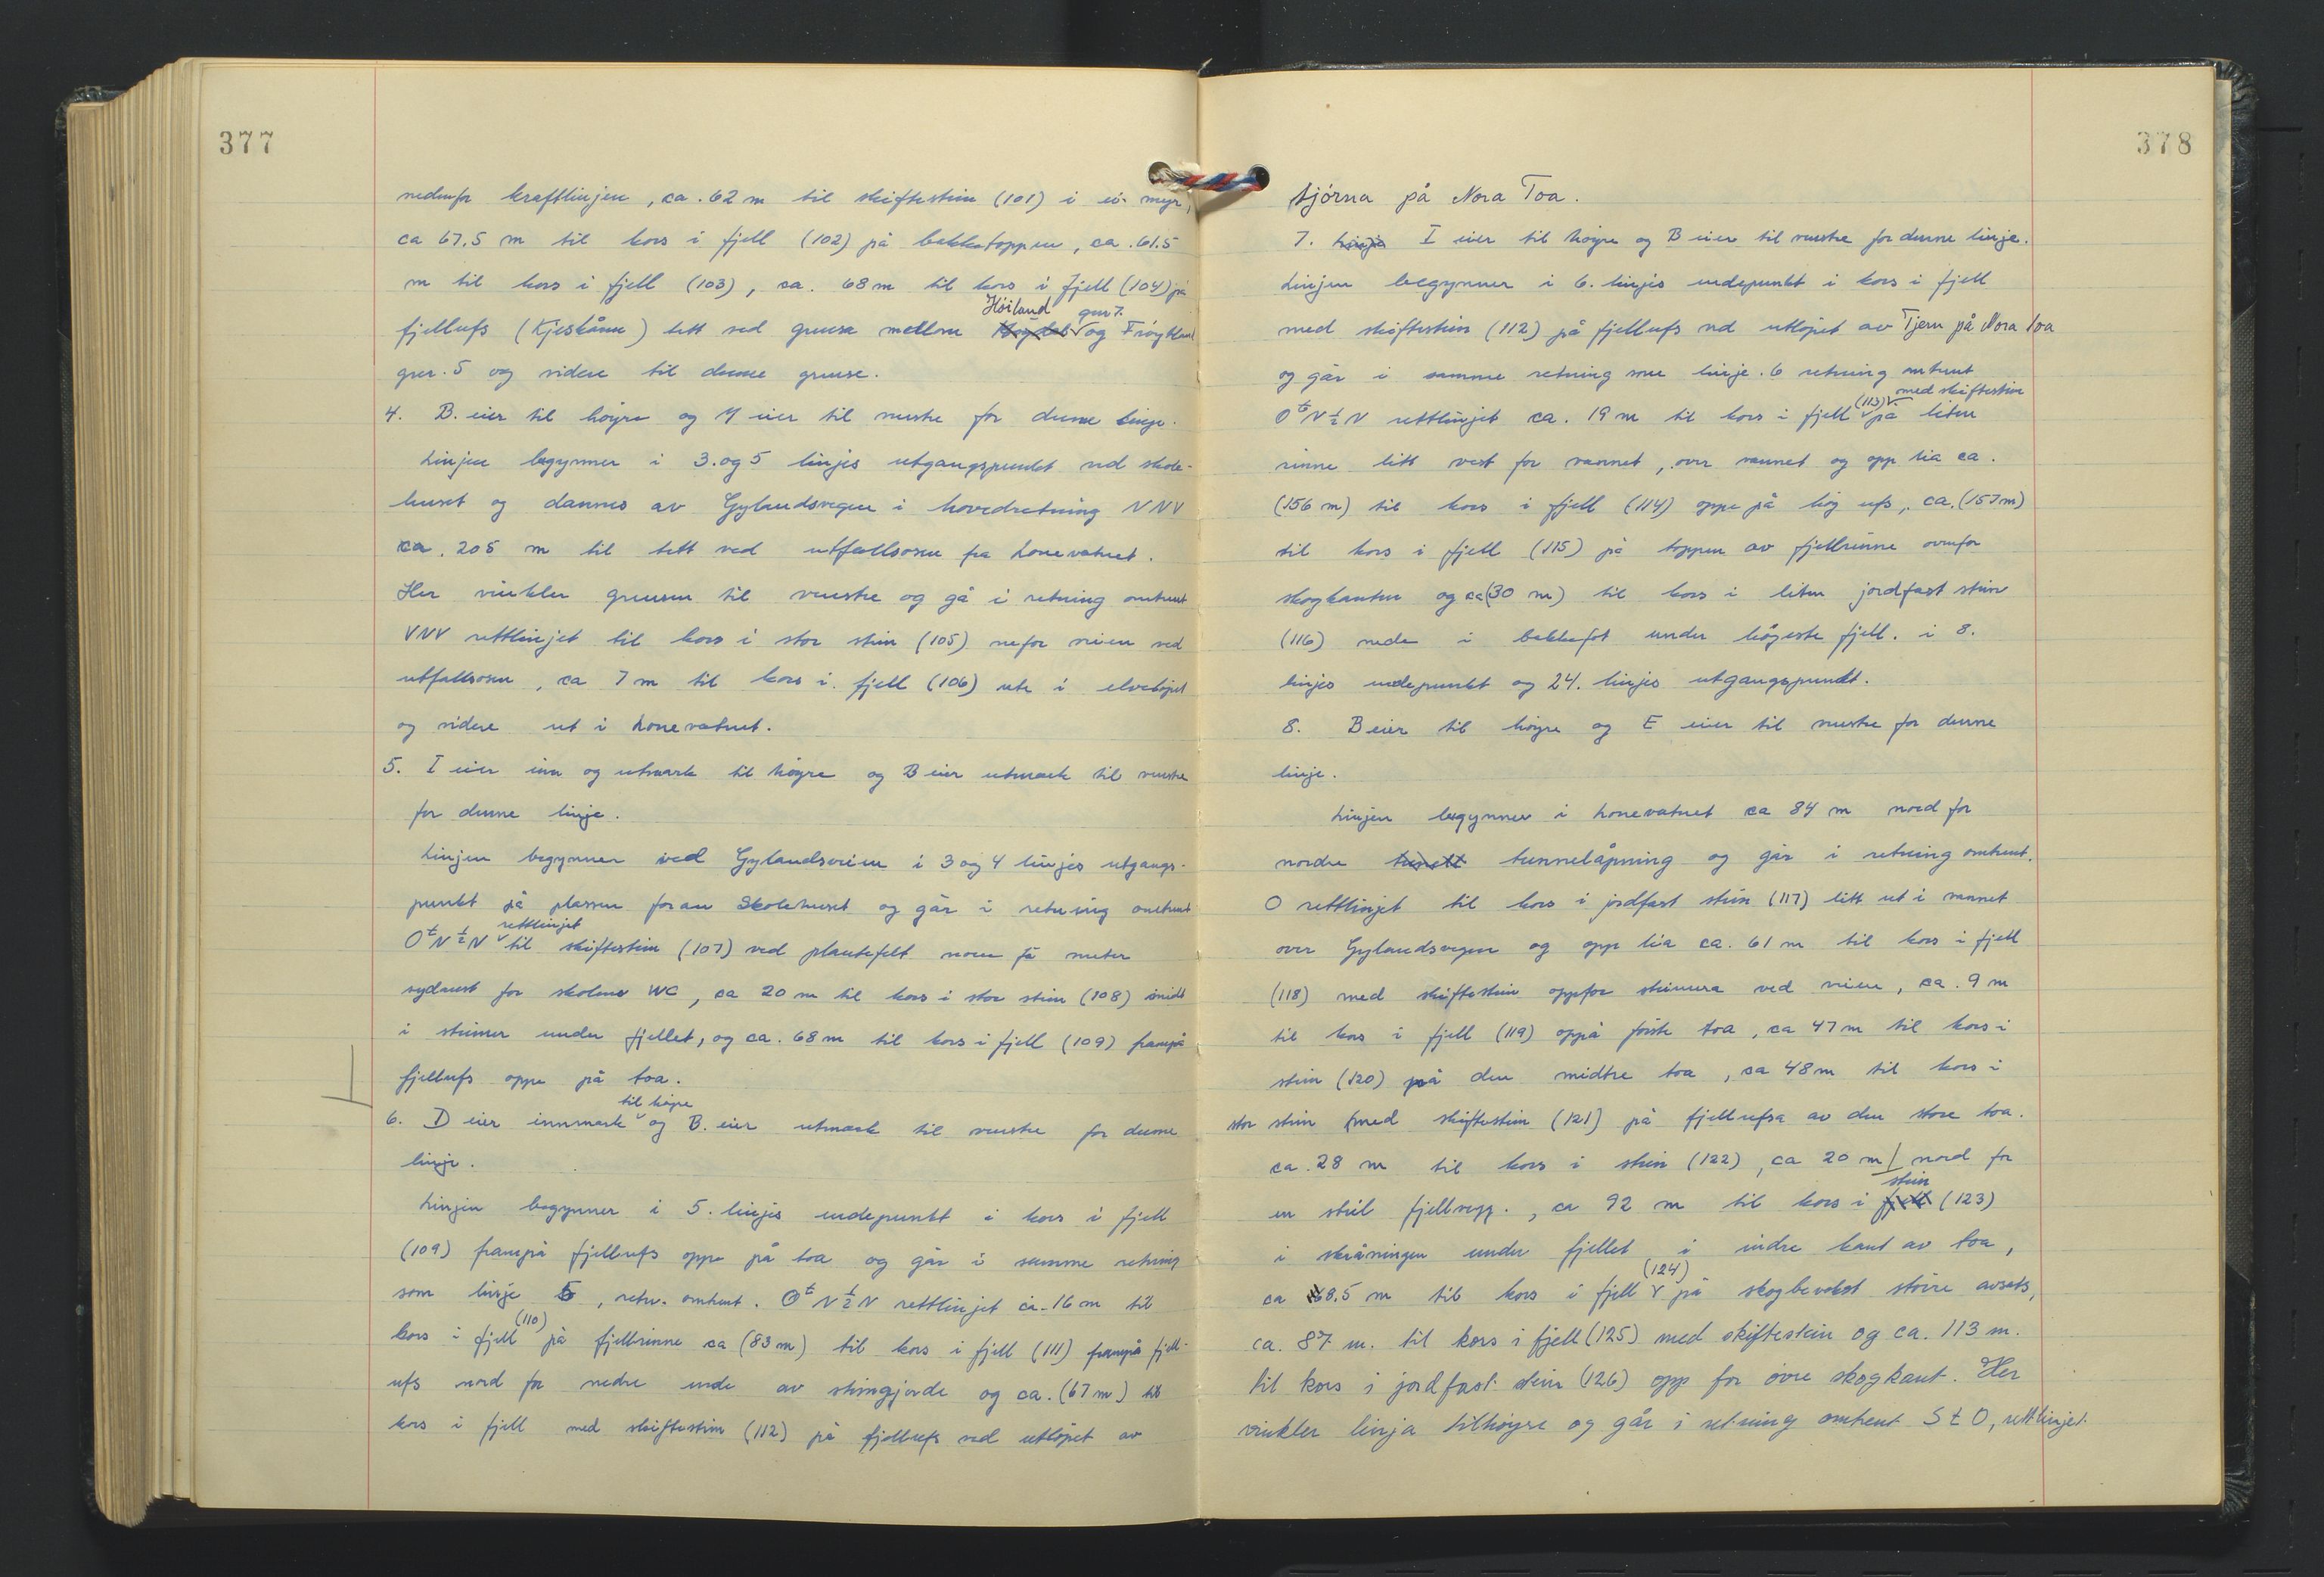 377
nedenfor kraftlinjen, ca. 62 m til skiftestein (101) i ei myr,
ca 67.5 m til kors i fjell (102) på bakketoppen, ca. 61.5
m til kors i fjell (103), ca. 68 m til kors i fjell (104) på
Höiland gnr 7.
fjellufs (Kjeskåne) tett ved grense mellom og Fröytland
gnr. 5 og videre til denne grense.
4. B. eier til höyre og Y eier til venstre for denne linje.
Linjen begynner i 3. og 5 linjes utgangspunkt ved skole-
huset og dannes av Gylandsvegen i hovedretning NNV
ca. 205 m til tett ved utfallsosen fra Lonevatnet.
Her vinkler grensen til venstre og gå i retning omtrent
VNV rettlinjet til kors i stor stein (105) nefor veien ved
utfallsosen, ca 7 m til kors i fjell (106) ute i elvelöpet
og videre ut i Lonevatnet.
5. I eier inn og utmark til höyre og B eier utmark til venstre
for denne linje.
Linjen begynner ved Gylandsveien i 3 og 4 linjes utgangs-
punkt på plassen foran Skolehuset og går i retning omtrent
rettlinjet
O t N ½ N til skiftestein (107) ved plantefelt noen få meter
sydvest for skolens WC, ca 20 m til kors i stor stein (108) midt
i steinur under fjellet, og ca. 68 m til kors i fjell (109) frampå
fjellufs oppe på toa.
til höyre
6. D eier innmark og B. eier utmark til venstre for denne
linje.
Linjen begynner i 5. linjes endepunkt i kors i fjell
(109) frampå fjellufs oppe på toa og går i samme retning
som linje 5, retn. omtrent. O t N ½ N rettlinjet ca. 16 m til
(110)
kors i fjell på fjellrinne ca (83 m) til kors i fjell (111) frampå fjell-
ufs nord for nedre ende av steingjerde og ca. (67 m) til
kors i fjell med skiftestein (112) på fjellufs ved utlöpet av
378
tjörna på Nora Toa.
7. Linje I eier til höyre og B eier til venstre for denne linje.
Linjen begynner i 6. linjes endepunkt i kors i fjell
med skiftestein (112) på fjellufs ved utlöpet av Tjern på Nora Toa
og går i samme retning som linje. 6 retning omtrent
(113) med skiftestein
O t N ½ N rettlinjet ca. 19 m til kors i fjell på liten
rinne litt vest for vannet, over vannet og opp lia ca.
(156 m) til kors i fjell (114) oppe på höy ufs, ca. (157 m)
til kors i fjell (115) på toppen av fjellrinne ovenfor
skogkanten og ca (30 m) til kors i liten jordfast stein
(116) nede i bakkefot under högeste fjell. i 8.
linjes endepunkt og 24. linjes utgangspunkt.
8. B eier til höyre og E eier til venstre for denne
linje.
Linjen begynner i Lonevatnet ca 84 m nord for
nordre tunnelåpning og går i retning omtrent.
O rettlinjet til kors i jordfast stein (117) litt ut i vannet
over Gylandsvegen og opp lia ca. 61 m til kors i fjell
(118) med skiftestein oppfor steinura ved veien, ca. 9 m
til kors i fjell (119) oppå förste toa, ca 47 m til kors i
stein (120) på den midtre toa, ca 48 m til kors i
stor stein med skiftestein (121) på fjellufsa av den store toa.
ca. 28 m til kors i stein (122), ca 20 m nord for
stein
en steil fjellvegg., ca 92 m til kors i fjell (123)
i skråningen under fjellet i indre kant av toa,
(124)
ca 68.5 m til kors i fjell på skogbevokst större avsats,
ca. 87 m. til kors i fjell (125) med skiftestein og ca. 113 m.
til kors i jordfast stein (126) opp for övre skogkant. Her
vinkler linja tilhöyre og går i retning omtrent S t O, rettlinjet